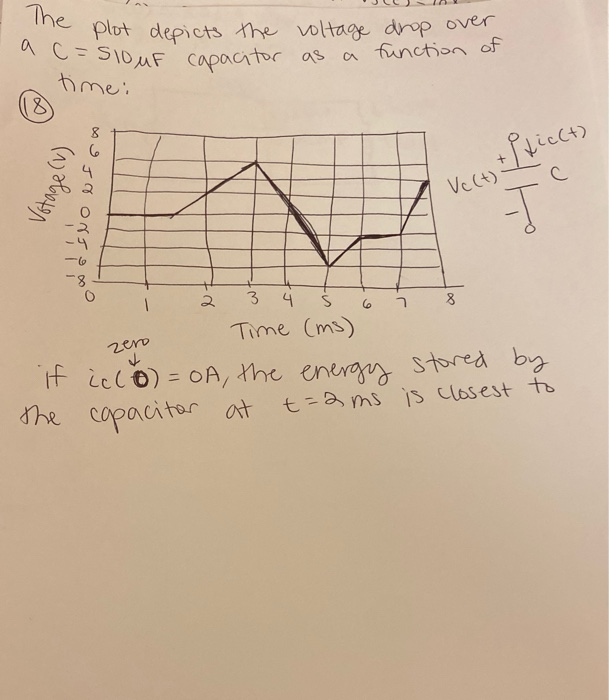 The plot depicts the voltage drop over
a C = 510 μF capacitor as a function of
time:
18
Votage (v)
8
6
4
2
0
-2
-4
-6
-8
0 1 2 3 4 5 6 7 8
Time (ms)
+ ic(t)
Vc(t) C
-
zero
if ic(0) = 0A, the energy stored by
the capacitor at t = 2 ms is closest to